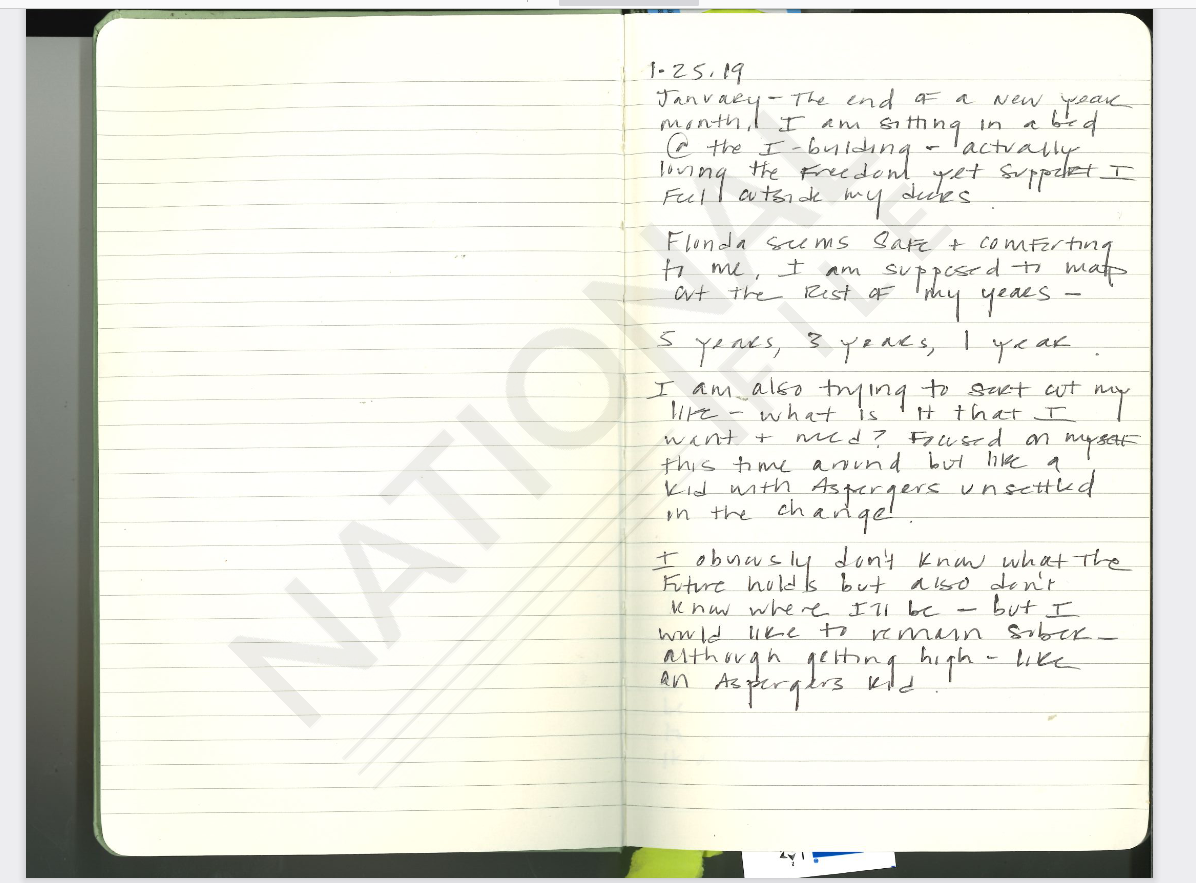 1-25.19
January - The end of a new year
month, I am sitting in a bed
@ the I-building - actually
loving the freedom yet support I
feel outside my doors.
Florida seems safe + comforting
to me, I am supposed to map
out the rest of my years -
5 years, 3 years, 1 year.
I am also trying to sort out my
life - what is it that I
want + need? Focused on myself
this time around but like a
kid with Aspergers unsettled
in the change.
I obviously don't know what the
future holds but also don't
know where I'll be - but I
would like to remain sober -
although getting high - like
an Aspergers kid.
NATIONAL
FILE